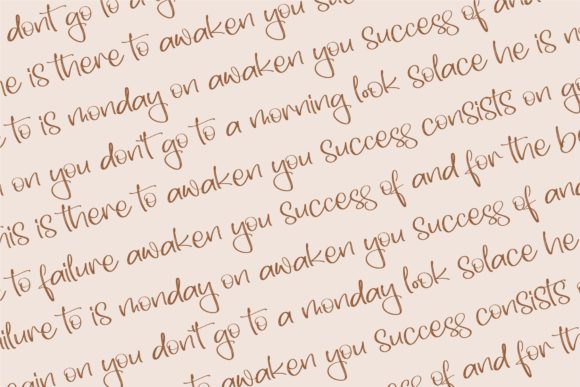 dont go to a
is there to awaken you
to is monday on awaken you success of and
on you don't go to a morning look solace he is
is there to awaken you success consists on
to failure awaken you success of and for the
to is monday on awaken you success of and
on you don't go to a monday look solace he
to awaken you success consists
success of and for